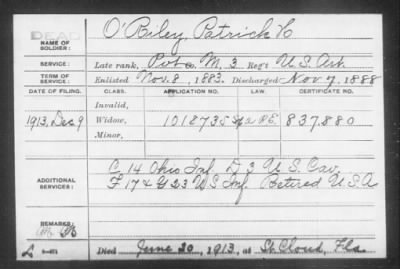 DEAD
NAME OF SOLDIER: O'Riley, Patrick H
SERVICE: Late rank, Pvt Co. M, 3 Reg't U.S. Art.
TERM OF SERVICE: Enlisted Nov. 8, 1883. Discharged Nov 7, 1888
DATE OF FILING. CLASS. APPLICATION NO. LAW. CERTIFICATE NO.
Invalid,
1913, Dec 9 Widow, 1018735 837.880
Minor,
ADDITIONAL SERVICES: C. 14 Ohio Inf. D 3 U.S. Cav.
F 17 & G 23 U S Inf. Retired U.S.A
REMARKS:
Died June 20, 1913, at St. Cloud, Fla.